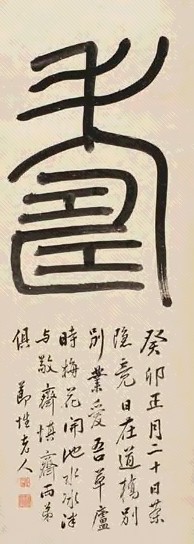 壽
癸卯正月二十日葉
隱竟日在道橋別
別業愛吾草廬
時梅花開池水冰泮
与敬齋慎齋两弟
俱 節性老人